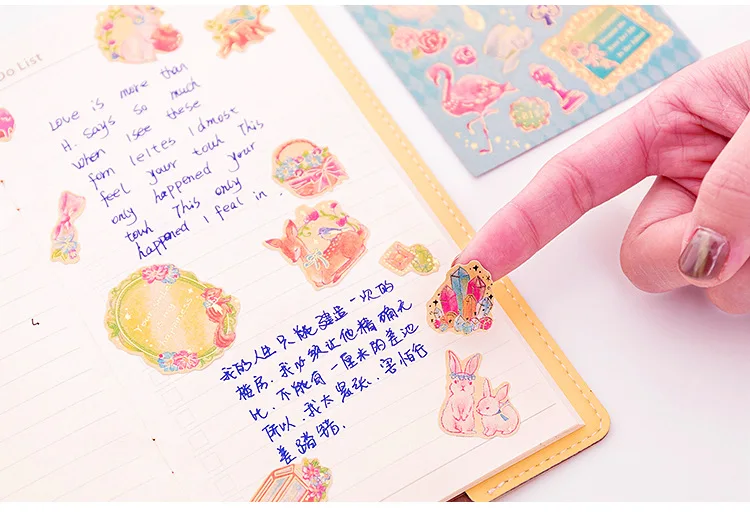 Do List
Love is more than
H. Says so much
when I see these
fom leltes I dmost
feel your touh This
only happened your
touh This only
happened I feal in.
我的人生只能建造一次的
楼房.我必须让他精确无
比.不能有一厘米的差池
所以.我太紧张.害怕行
差踏错.